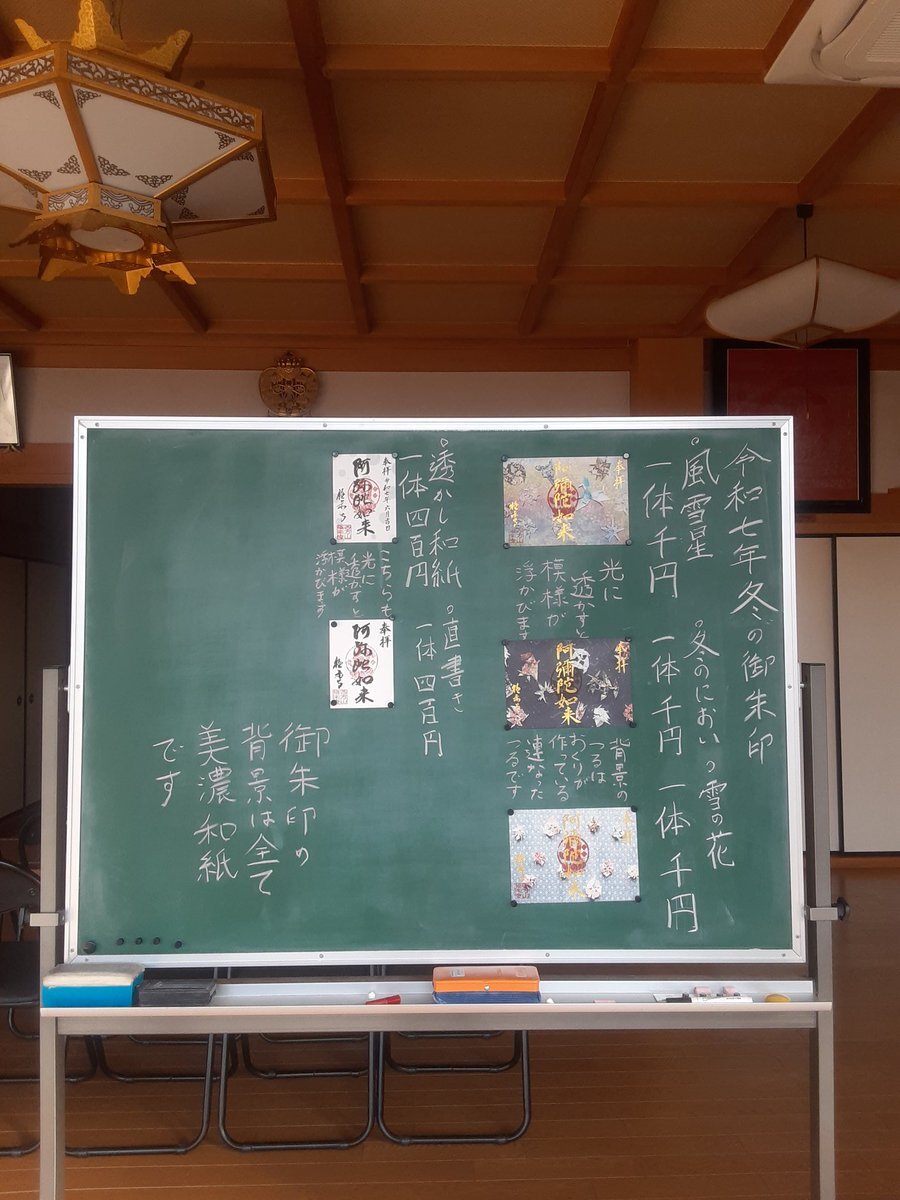 令和七年冬の御朱印
。風雪星 。冬のにおい 。雪の花
一体千円 一体千円 一体 千円
奉拝
阿彌陀如来
光に
透かすと
模様が
浮かびます
奉拝
阿彌陀如来
背景の
つるは
おくりが
作っている
連なった
つるです
。透かし和紙 。直書き
一体四百円 一体四百円
奉拝 令和七年六月吉日
阿弥陀如来
こちらも
光に
透かすと
模様が
浮かびます
奉拝
阿弥陀如来
御朱印の
背景は全て
美濃和紙
です